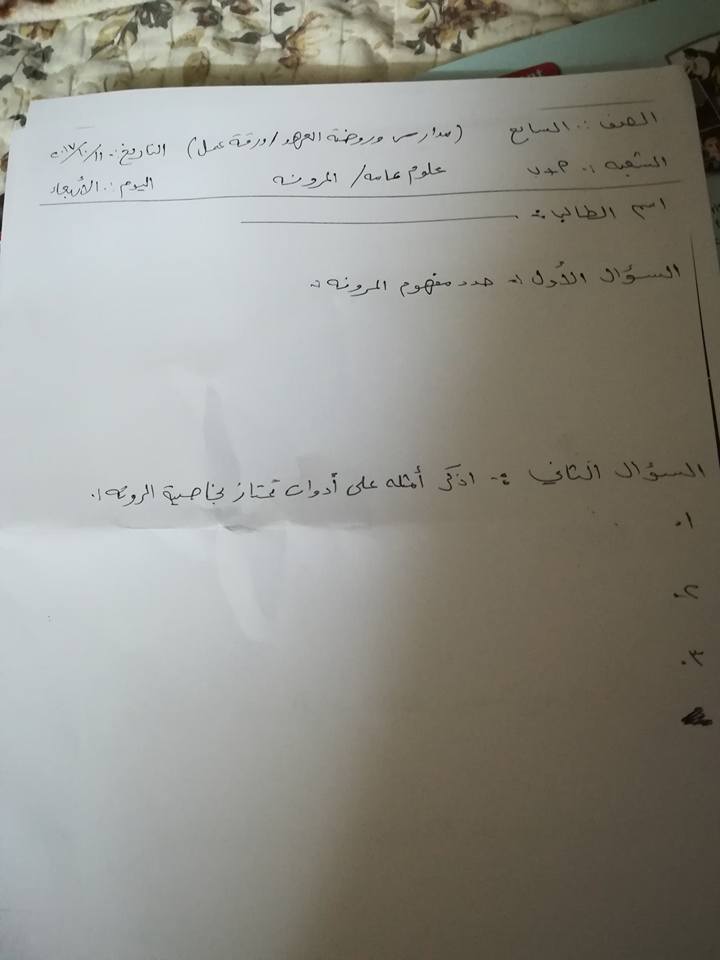 الصف :. السابع (مدارس وروضة العهد / ورقة عمل) التاريخ :. ٢٠١٧/١٠/١١
الشعبه :. علوم عامه / المرونه اليوم :. الأربعاء
اسم الطالب :-
السؤال الأول :- حدد مفهوم المرونه :-
السؤال الثاني :- اذكر أمثله على أدوات تمتاز بخاصية المرونه :.
١.
٢.
٣.